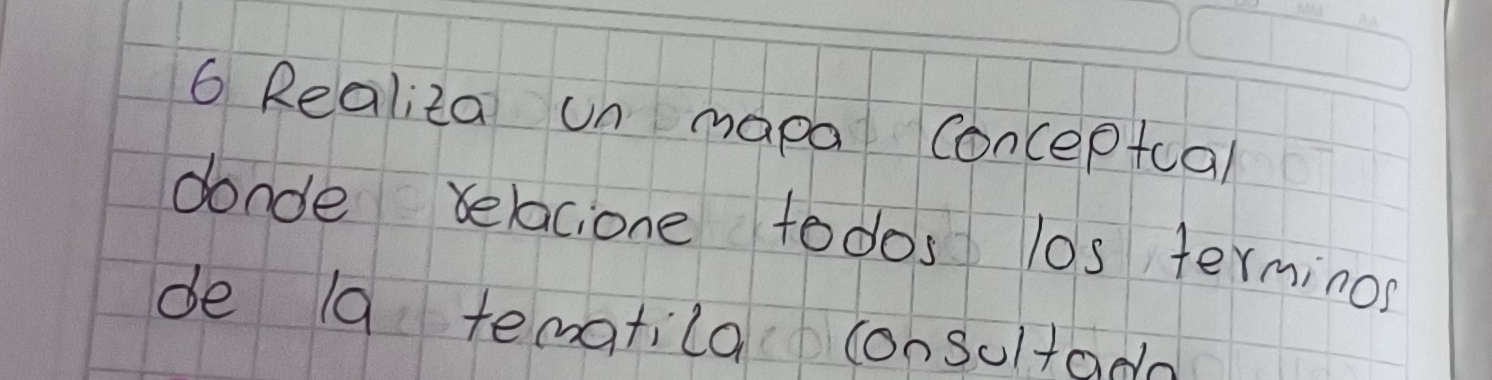 6 Realiza un mapa conceptual
donde relacione todos los terminos
de la tematica consultada